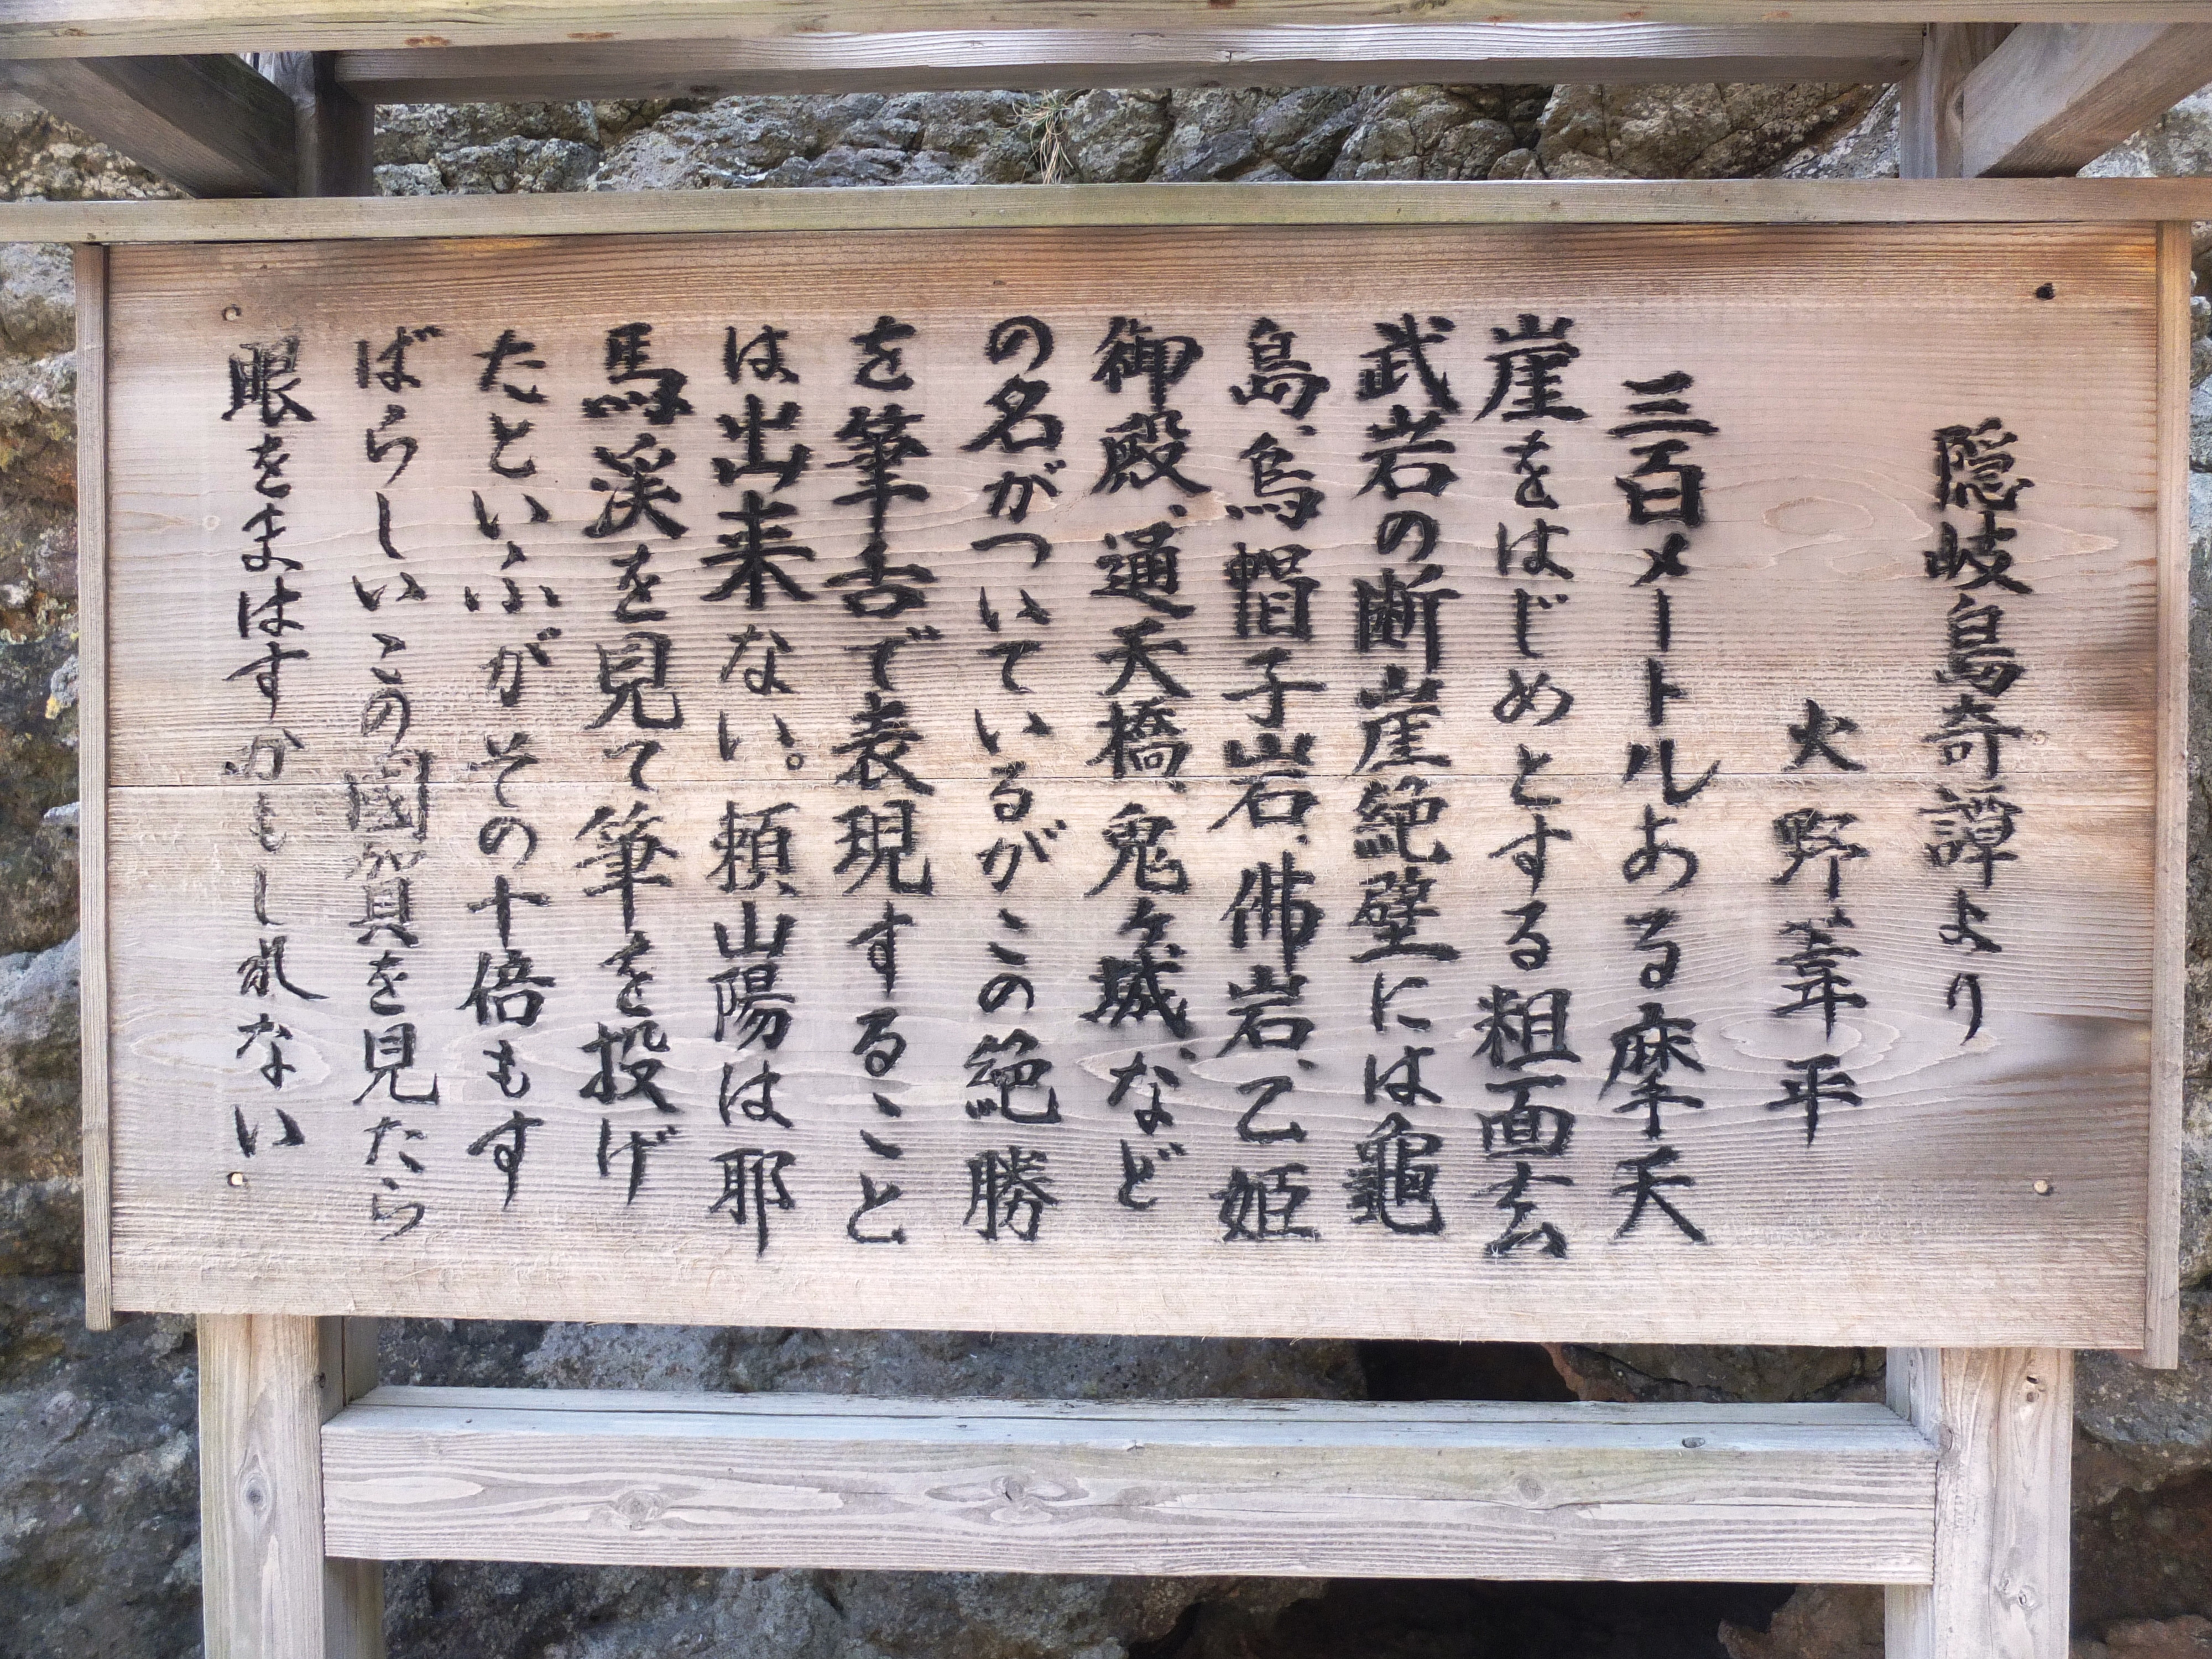 隠岐島奇譚より
火野葦平
三百メートルある摩天
崖をはじめとする粗面玄
武岩の断崖絶壁には龜
島、烏帽子岩、佛岩、乙姫
御殿、通天橋、鬼ヶ城、など
の名がついているがこの絶勝
を筆舌で表現すること
は出来ない。頼山陽は耶
馬渓を見て筆を投げ
たといふがその十倍もす
ばらしいこの國賀を見たら
眼をまはすかもしれない